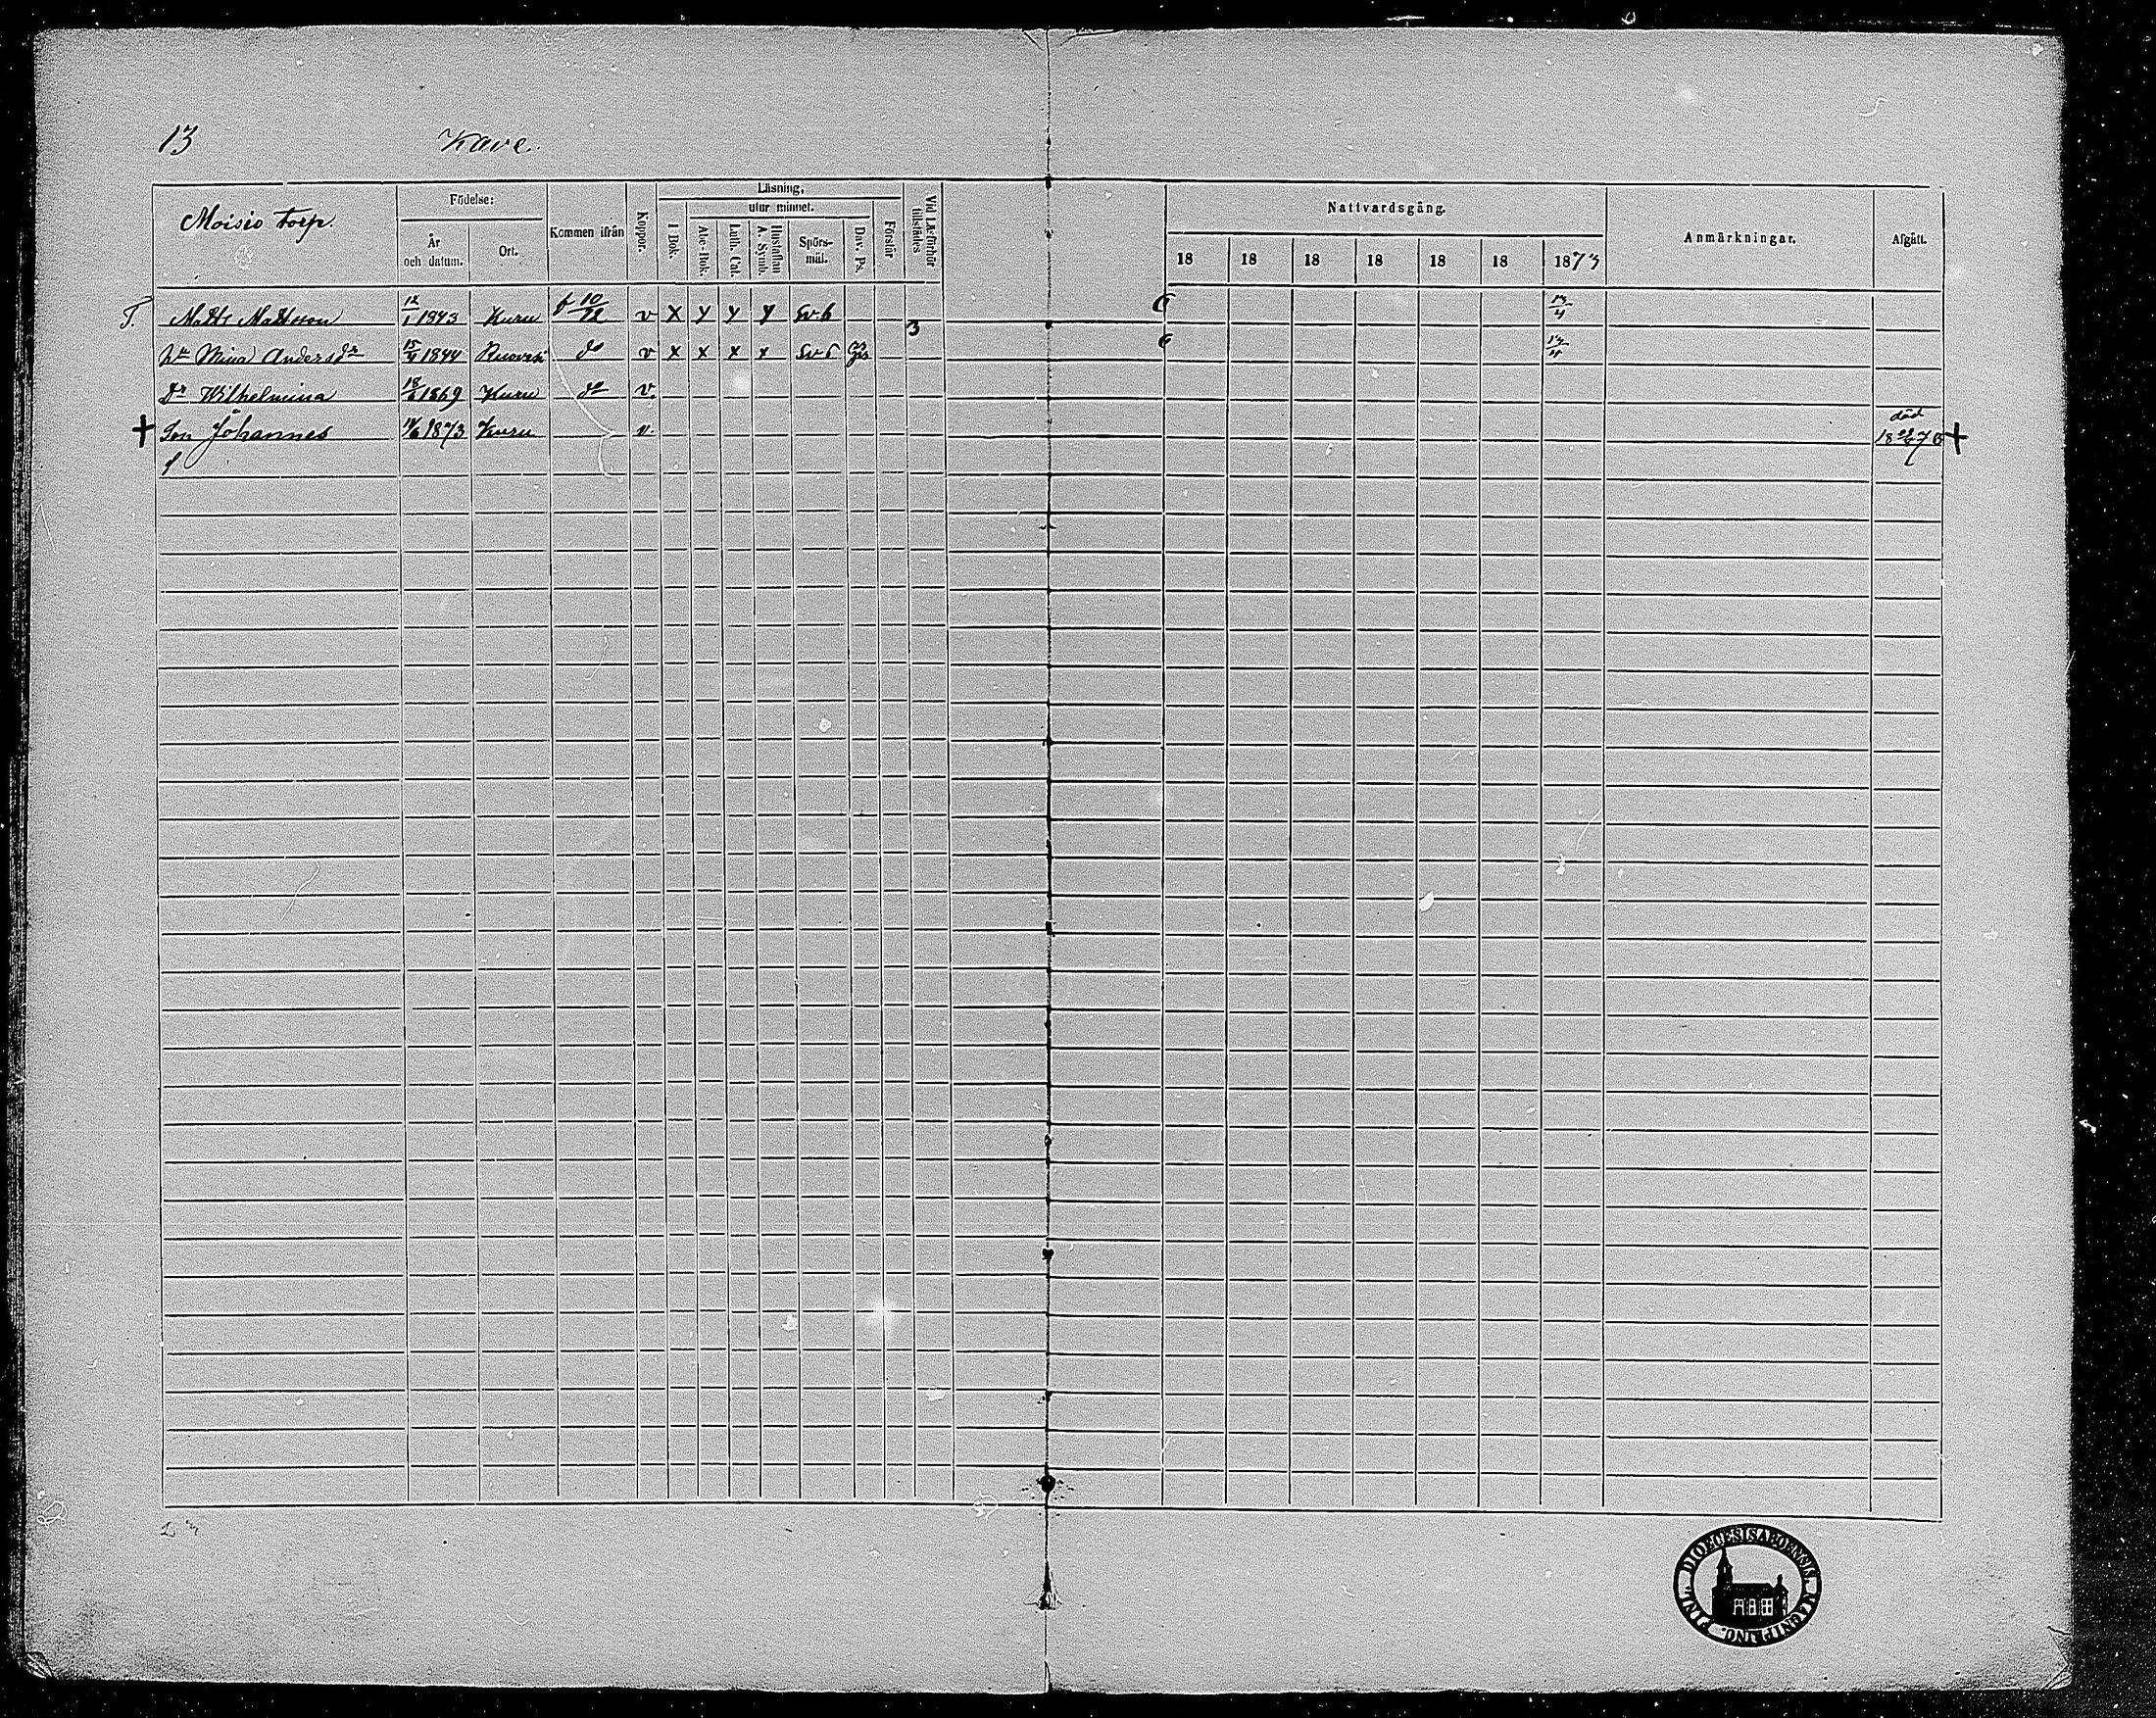 13 Kave.
Moisio torp.
Födelse:
År och datum.
Ort.
Kommen ifrån
Koppor.
Läsning,
utur minnet.
I Bok.
Abc-Bok.
Luth. Cat.
Hustaflan A. Symb.
Spörs-mål.
Dav. Ps.
Förstår
Vid Läsförhör tillstädes
Nattvardsgång.
18 18 18 18 18 18 1873
Anmärkningar.
Afgått.
T. Matts Mattsson 12/1 1843 Kuru f 10/72 v x y y y Sv. b 3 13/4
hu Mina Andersdr 15/4 1844 Ruovesi do v x x x x Sv 13/4
Dr Wilhelmina 1869 Kuru do v.
+ Son Johannes 1873 Kuru v. död +
DIOECESIS ABOENSIS. MAGNI PRINC. FINL.